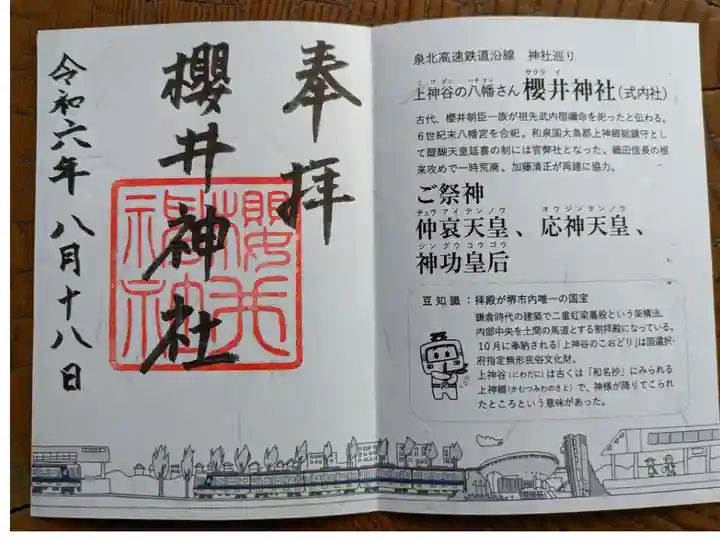 奉拝
櫻井神社
櫻井神社
令和六年 八月十八日
泉北高速鉄道沿線 神社巡り
ニワダニ ハチマン サクライ
上神谷の八幡さん 櫻井神社(式内社)
古代、櫻井朝臣一族が祖先武内宿禰命を祀ったと伝わる。
6世紀末八幡宮を合祀。和泉国大鳥郡上神郷総鎮守とし
て醍醐天皇延喜の制には官弊社となった。織田信長の根
来攻めで一時荒廃。加藤清正が再建に協力。
ご祭神
チュウアイテンノウ オウジンテンノウ
仲哀天皇、応神天皇、
ジングウコウゴウ
神功皇后
豆知識:拝殿が堺市内唯一の国宝
鎌倉時代の建築で二重虹梁蟇股という架構法、
内部中央を土間の馬道とする割拝殿になっている。
10月に奉納される「上神谷のこおどり」は国選択・
府指定無形民俗文化財。
上神谷(にわだに)は古くは「和名抄」にみられる
上神郷(かむつみわのさと)で、神様が降りてこられ
たところという意味があった。